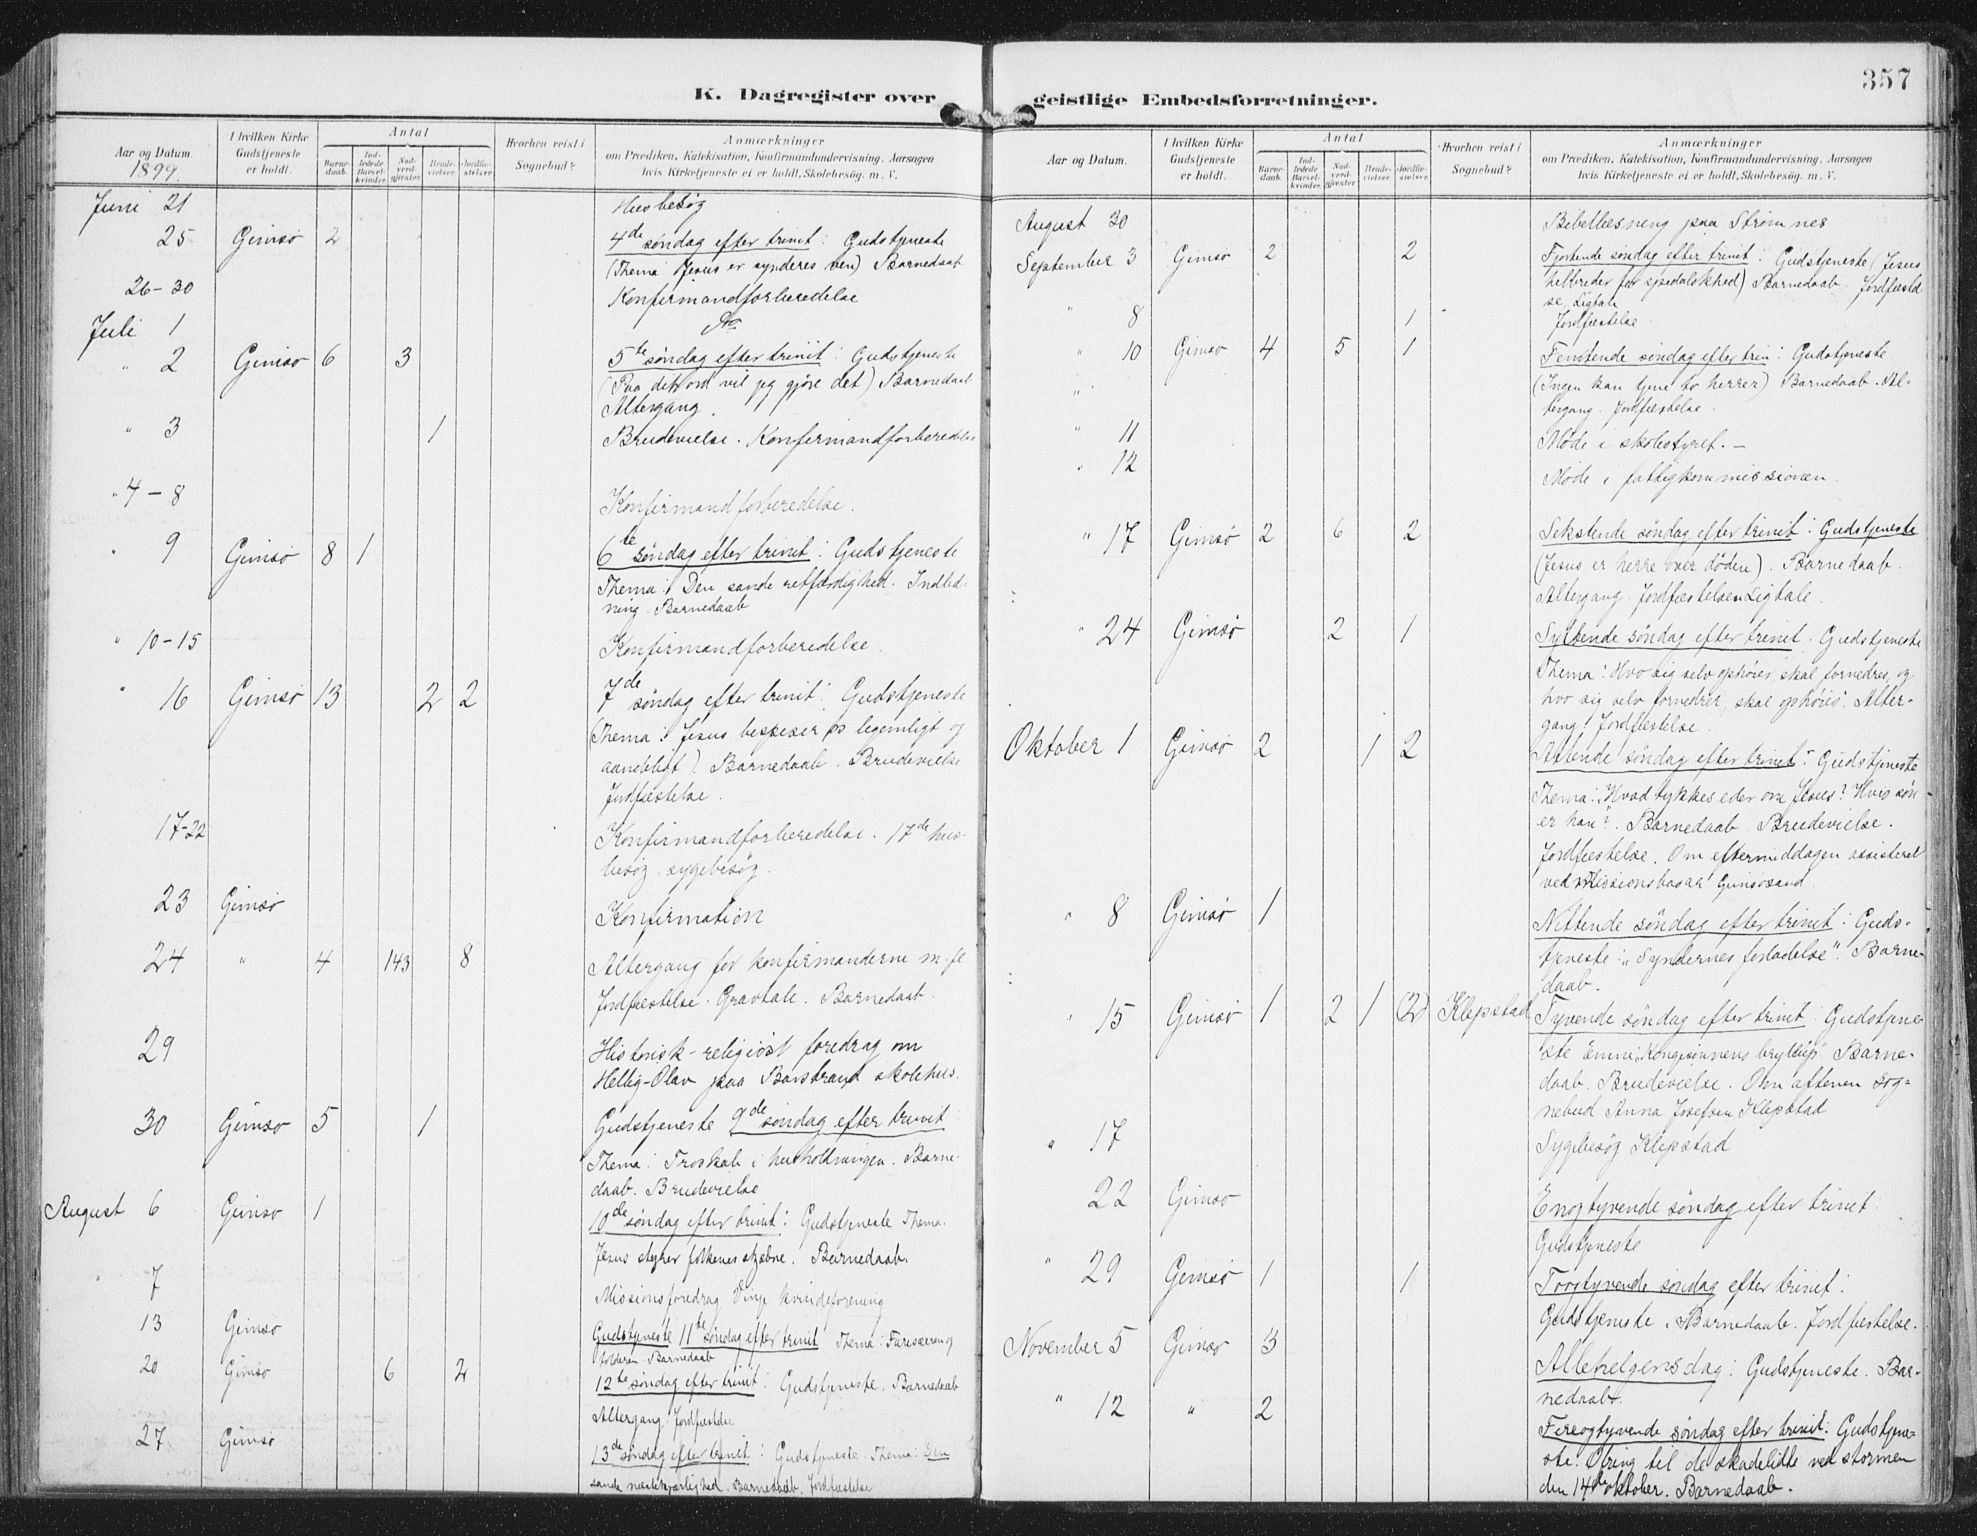 357
K. Dagregister over geistlige Embedsforretninger.
Aar og Datum.
1899.
I hvilken Kirke
Gudstjeneste
er holdt.
Antal
Barne-
daab.
Ind-
ledede
Barsel-
kvinder.
Nad-
verd-
gjæster.
Brude-
vielser.
Jordfæ-
stelser.
Hvorhen reist i
Sognebud?
Anmærkninger
om Prædiken, Katekisation, Konfirmandundervisning, Aarsagen
hvis Kirketjeneste ei er holdt, Skolebesøg. m. V.
Juni 21 Husbesøg
25 Gimsø 2 4de søndag efter trinit: Gudstjeneste
(Thema: Jesus er synderes ven) Barnedaab
26-30 Konfirmandforberedelse
Juli 1 Do
" 2 Gimsø 6 3 5te søndag efter trinit: Gudstjeneste
(Paa dit ord vil jeg gjøre det) Barnedaab
Altergang.
" 3 1 Brudevielse. Konfirmandforberedelse
" 4-8 Konfirmandforberedelse.
" 9 Gimsø 8 1 6te søndag efter trinit: Gudstjeneste
Thema: Den sande retfærdighed. Indled-
ning. Barnedaab
" 10-15 Konfirmandforberedelse.
" 16 Gimsø 13 2 2 7de søndag efter trinit: Gudstjeneste
(Thema: Jesus bespiser os legemligt og
aandeligt). Barnedaab. Brudevielse
Jordfæstelse.
17-22 Konfirmandforberedelse. 17de hus-
besøg. sygebesøg.
23 Gimsø Konfirmation
24 " 4 143 8 Altergang for konfirmanderne m. fl
Jordfæstelse. Gravtale. Barnedaab.
29 Historisk-religiøst foredrag om
Hellig-Olav paa Barstrand skolehus.
30 Gimsø 5 1 Gudstjeneste 9de søndag efter trinit
Thema: Troskab i husholdningen. Barne-
daab. Brudevielse
August 6 Gimsø 1 10de søndag efter trinit: Gudstjeneste Thema:
Jesus styrer folkenes skjæbne. Barnedaab.
" 7 Missionsforedrag Vinje kvindeforening
13 Gimsø Gudstjeneste 11te søndag efter trinit Thema: Farisæeren og
tolderen. Barnedaab
20 Gimsø 6 2 12te søndag efter trinit: Gudstjeneste. Barnedaab
Altergang. Jordfæstelse
27 Gimsø 13de søndag efter trinit: Gudstjeneste Thema: Den
sande næstekjærlighed. Barnedaab. Jordfæstelse
Aar og Datum.
I hvilken Kirke
Gudstjeneste
er holdt.
Antal
Barne-
daab.
Ind-
ledede
Barsel-
kvinder.
Nad-
verd-
gjæster.
Brude-
vielser.
Jordfæ-
stelser.
Hvorhen reist i
Sognebud?
Anmærkninger
om Prædiken, Katekisation, Konfirmandundervisning, Aarsagen
hvis Kirketjeneste ei er holdt, Skolebesøg. m. V.
August 30 Bibellæsning paa Strømnes
September 3 Gimsø 2 2 Fjortende søndag efter trinit: Gudstjeneste (Jesus
helbreder for spedalskhed) Barnedaab. Jordfæstel-
se. Ligtale
" 8 1 Jordfæstelse.
" 10 Gimsø 4 5 1 Femtende søndag efter trin: Gudstjeneste
(Ingen kan tjene to herrer) Barnedaab. Al-
tergang. Jordfæstelse.
" 11 Møde i skolestyret. —
" 12 Møde i fattigkommissionen.
" 17 Gimsø 2 6 2 Sekstende søndag efter trinit: Gudstjeneste
(Jesus er herre over døden). Barnedaab.
Altergang. Jordfæstelse Ligtale.
" 24 Gimsø 2 1 Syttende søndag efter trinit. Gudstjeneste
Thema: Hvo sig selv ophøier, skal fornedres, og
hvo sig selv fornedrer, skal ophøies. Alter-
gang. Jordfæstelse.
Oktober 1 Gimsø 2 1 2 Attende søndag efter trinit: Gudstjeneste
Thema: Hvad tykkes eder om Jesus? Hvis søn
er han? Barnedaab Brudevielse.
Jordfæstelse. Om eftermiddagen assisteret
ved missionsbasar Gimsøsand.
" 8 Gimsø 1 Nittende søndag efter trinit: Guds-
tjeneste: „Syndernes forladelse". Barne-
daab.
" 15 Gimsø 1 2 1 (2) Klepstad Tyvende søndag efter trinit: Gudstjene-
ste Emne: „Kongesønnens bryllup". Barne-
daab. Brudevielse. Om aftenen sog-
nebud Anna Josefsen Klepstad
" 17 Sygebesøg Klepstad
22 Gimsø Enogtyvende søndag efter trinit:
Gudstjeneste
" 29 Gimsø 1 1 Toogtyvende søndag efter trinit:
Gudstjeneste. Barnedaab. Jordfæstelse.
November 5 Gimsø 3 Allehelgensdag: Gudstjeneste. Bar-
nedaab.
" 12 " 2 Fireogtyvende søndag efter trinit: Gudstjene-
ste. Ofring til de skadelidte ved stormen
den 14de oktober. Barnedaab.